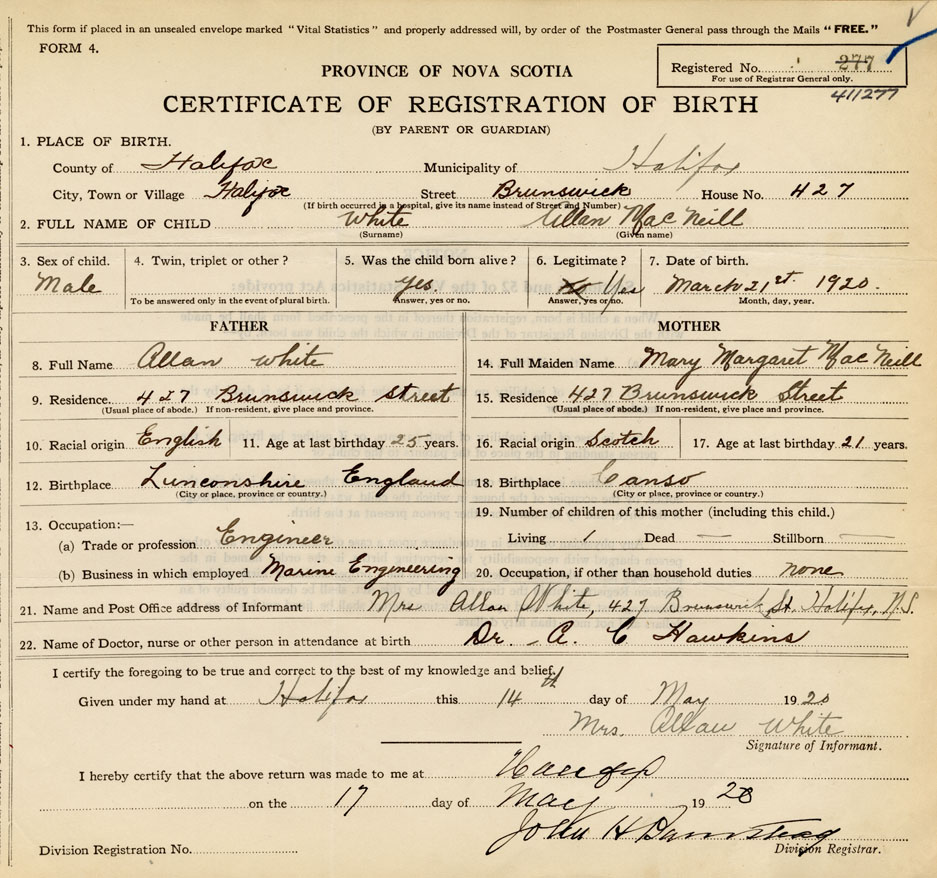 This form if placed in an unsealed envelope marked "Vital Statistics" and properly addressed will, by order of the Postmaster General pass through the Mails "FREE."
FORM 4.
Registered No. 277
For use of Registrar General only.
411277
PROVINCE OF NOVA SCOTIA
CERTIFICATE OF REGISTRATION OF BIRTH
(BY PARENT OR GUARDIAN)
1. PLACE OF BIRTH.
County of Halifax Municipality of Halifax
City, Town or Village Halifax Street Brunswick House No. 427
(If birth occurred in a hospital, give its name instead of Street and Number)
2. FULL NAME OF CHILD White Allan MacNeill
(Surname) (Given name)
3. Sex of child. 4. Twin, triplet or other? 5. Was the child born alive? 6. Legitimate? 7. Date of birth.
Male yes. No Yes March 21st 1920.
To be answered only in the event of plural birth. Answer, yes or no. Answer, yes or no. Month, day, year.
FATHER MOTHER
8. Full Name Allan White 14. Full Maiden Name Mary Margaret MacNeill
9. Residence. 427 Brunswick Street 15. Residence 427 Brunswick Street
(Usual place of abode.) If non-resident, give place and province. (Usual place of abode.) If non-resident, give place and province.
10. Racial origin English 11. Age at last birthday 25 years. 16. Racial origin Scotch 17. Age at last birthday 21 years.
12. Birthplace Linconshire England 18. Birthplace Canso
(City or place, province or country.) (City or place, province or country.)
13. Occupation:— 19. Number of children of this mother (including this child.)
(a) Trade or profession Engineer Living 1 Dead — Stillborn —
(b) Business in which employed Marine Engineering 20. Occupation, if other than household duties none
21. Name and Post Office address of Informant Mrs Allan White, 427 Brunswick St. Halifax, N.S.
22. Name of Doctor, nurse or other person in attendance at birth Dr. A. C Hawkins
I certify the foregoing to be true and correct to the best of my knowledge and belief.
Given under my hand at Halifax this 14th day of May 1920
Mrs. Allan White
Signature of Informant.
I hereby certify that the above return was made to me at Halifax
on the 17 day of May 1920
John H
Division Registration No. Division Registrar.